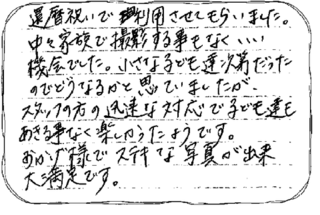 還暦祝いで利用させてもらいました。
中々家族で撮影する事もなくいい
機会でした。小さな子ども達次第だった
のでどうなるかと思っていましたが、
スタッフの方の迅速な対応で子ども達も
あきる事なく楽しかったようです。
おかげ様でステキな写真が出来
大満足です。